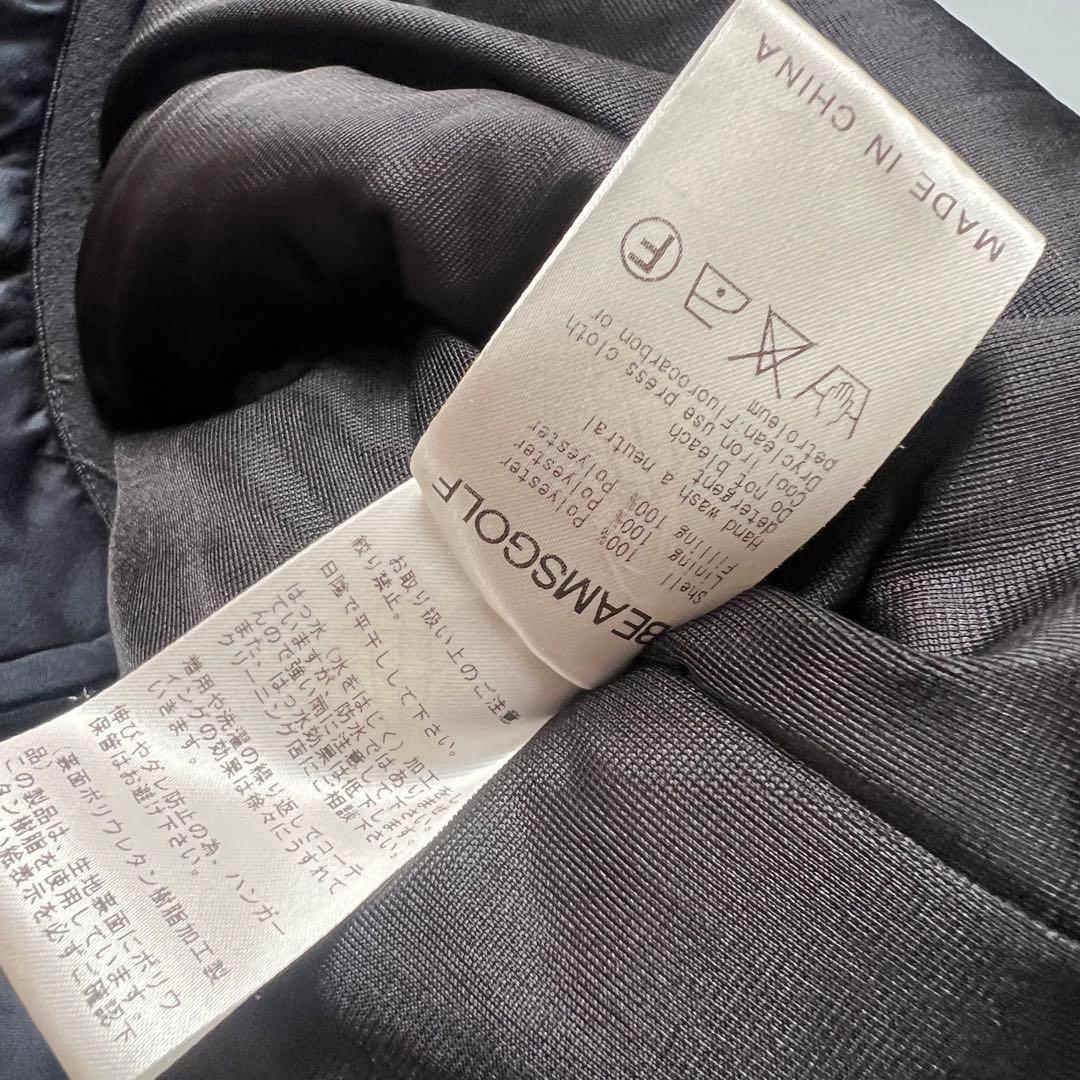 BEAMSGOLF
Shell 100% Polyester
Lining 100% Polyester
Filling 100% Polyester
Hand wash a neutral
detergent
Do not bleach
Cool iron use press cloth
Dryclean-Fluorocarbon or
petroleum
F
MADE IN CHINA
お取り扱い上のご注意
絞り禁止。
日陰で平干しして下さい。
はっ水（水をはじく）加工
ていますが、防水ではありませ
んので強い雨に注意して下さい。
また、はっ水効果は低下します。
クリーニング店にご相談下さい。
着用や洗濯の繰り返しでコーテ
ィングの効果は徐々にうすれて
いきます。
伸びやダレ防止の為、ハンガー
保管はお避け下さい。
（裏面ポリウレタン樹脂加工製
品）の製品は、生地裏面にポリウ
タン樹脂を使用しています。
絵表示を必ずご確認下